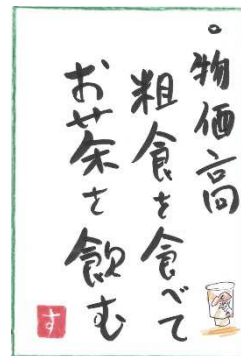 。物価高
粗食を食べて
お茶を飲む
す